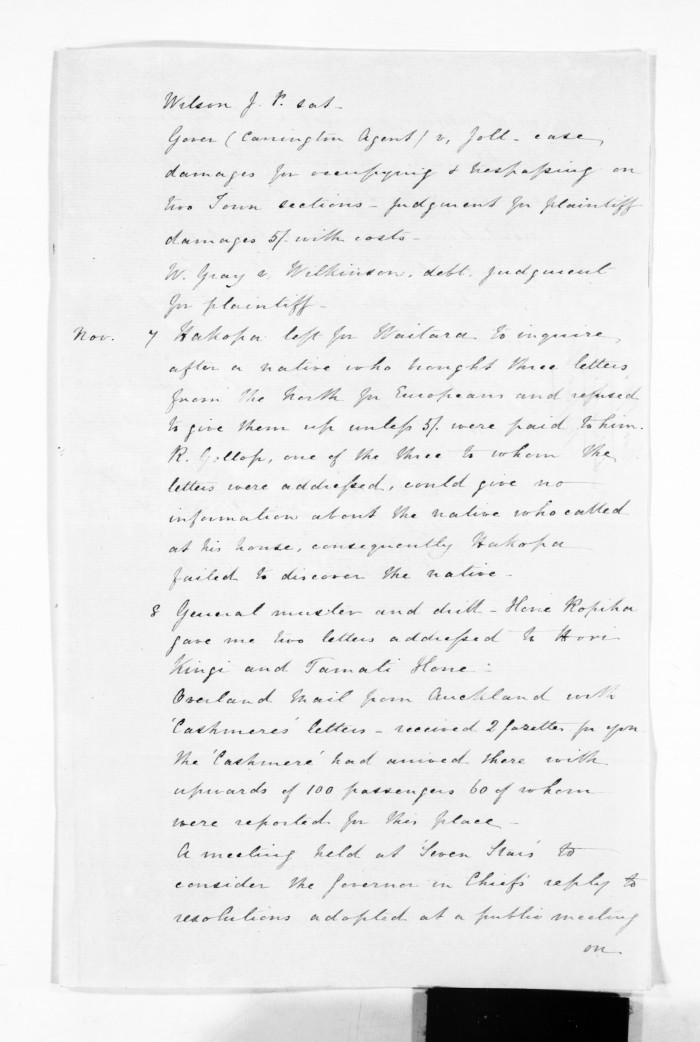 Wilson J. P. sat -
Gover (Carrington Agent) v, Joll - case,
damages for occupying & trespassing on
two Town sections - Judgment for plaintiff
damages 5/. with costs -
W. Gray v. Wilkinson, debt. Judgment
for plaintiff -
Nov. 7 Hakopa left for Waitara to inquire
after a native who brought three letters
from the North for Europeans and refused
to give them up unless 5/. were paid to him.
R. Gollop, one of the three to whom the
letters were addressed, could give no
information about the native who called
at his house, consequently Hakopa
failed to discover the native -
8 General muster and drill - Hone Ropiha
gave me two letters addressed to Hori
Kingi and Tamati Hone :
Overland Mail from Auckland with
'Cashmeres' letters - received 2 Gazettes for you
the 'Cashmere' had arrived there with
upwards of 100 passengers 60 of whom
were reported for this place -
A meeting held at 'Seven Stars' to
consider the Governor in Chief's reply to
resolutions adopted at a public meeting
on